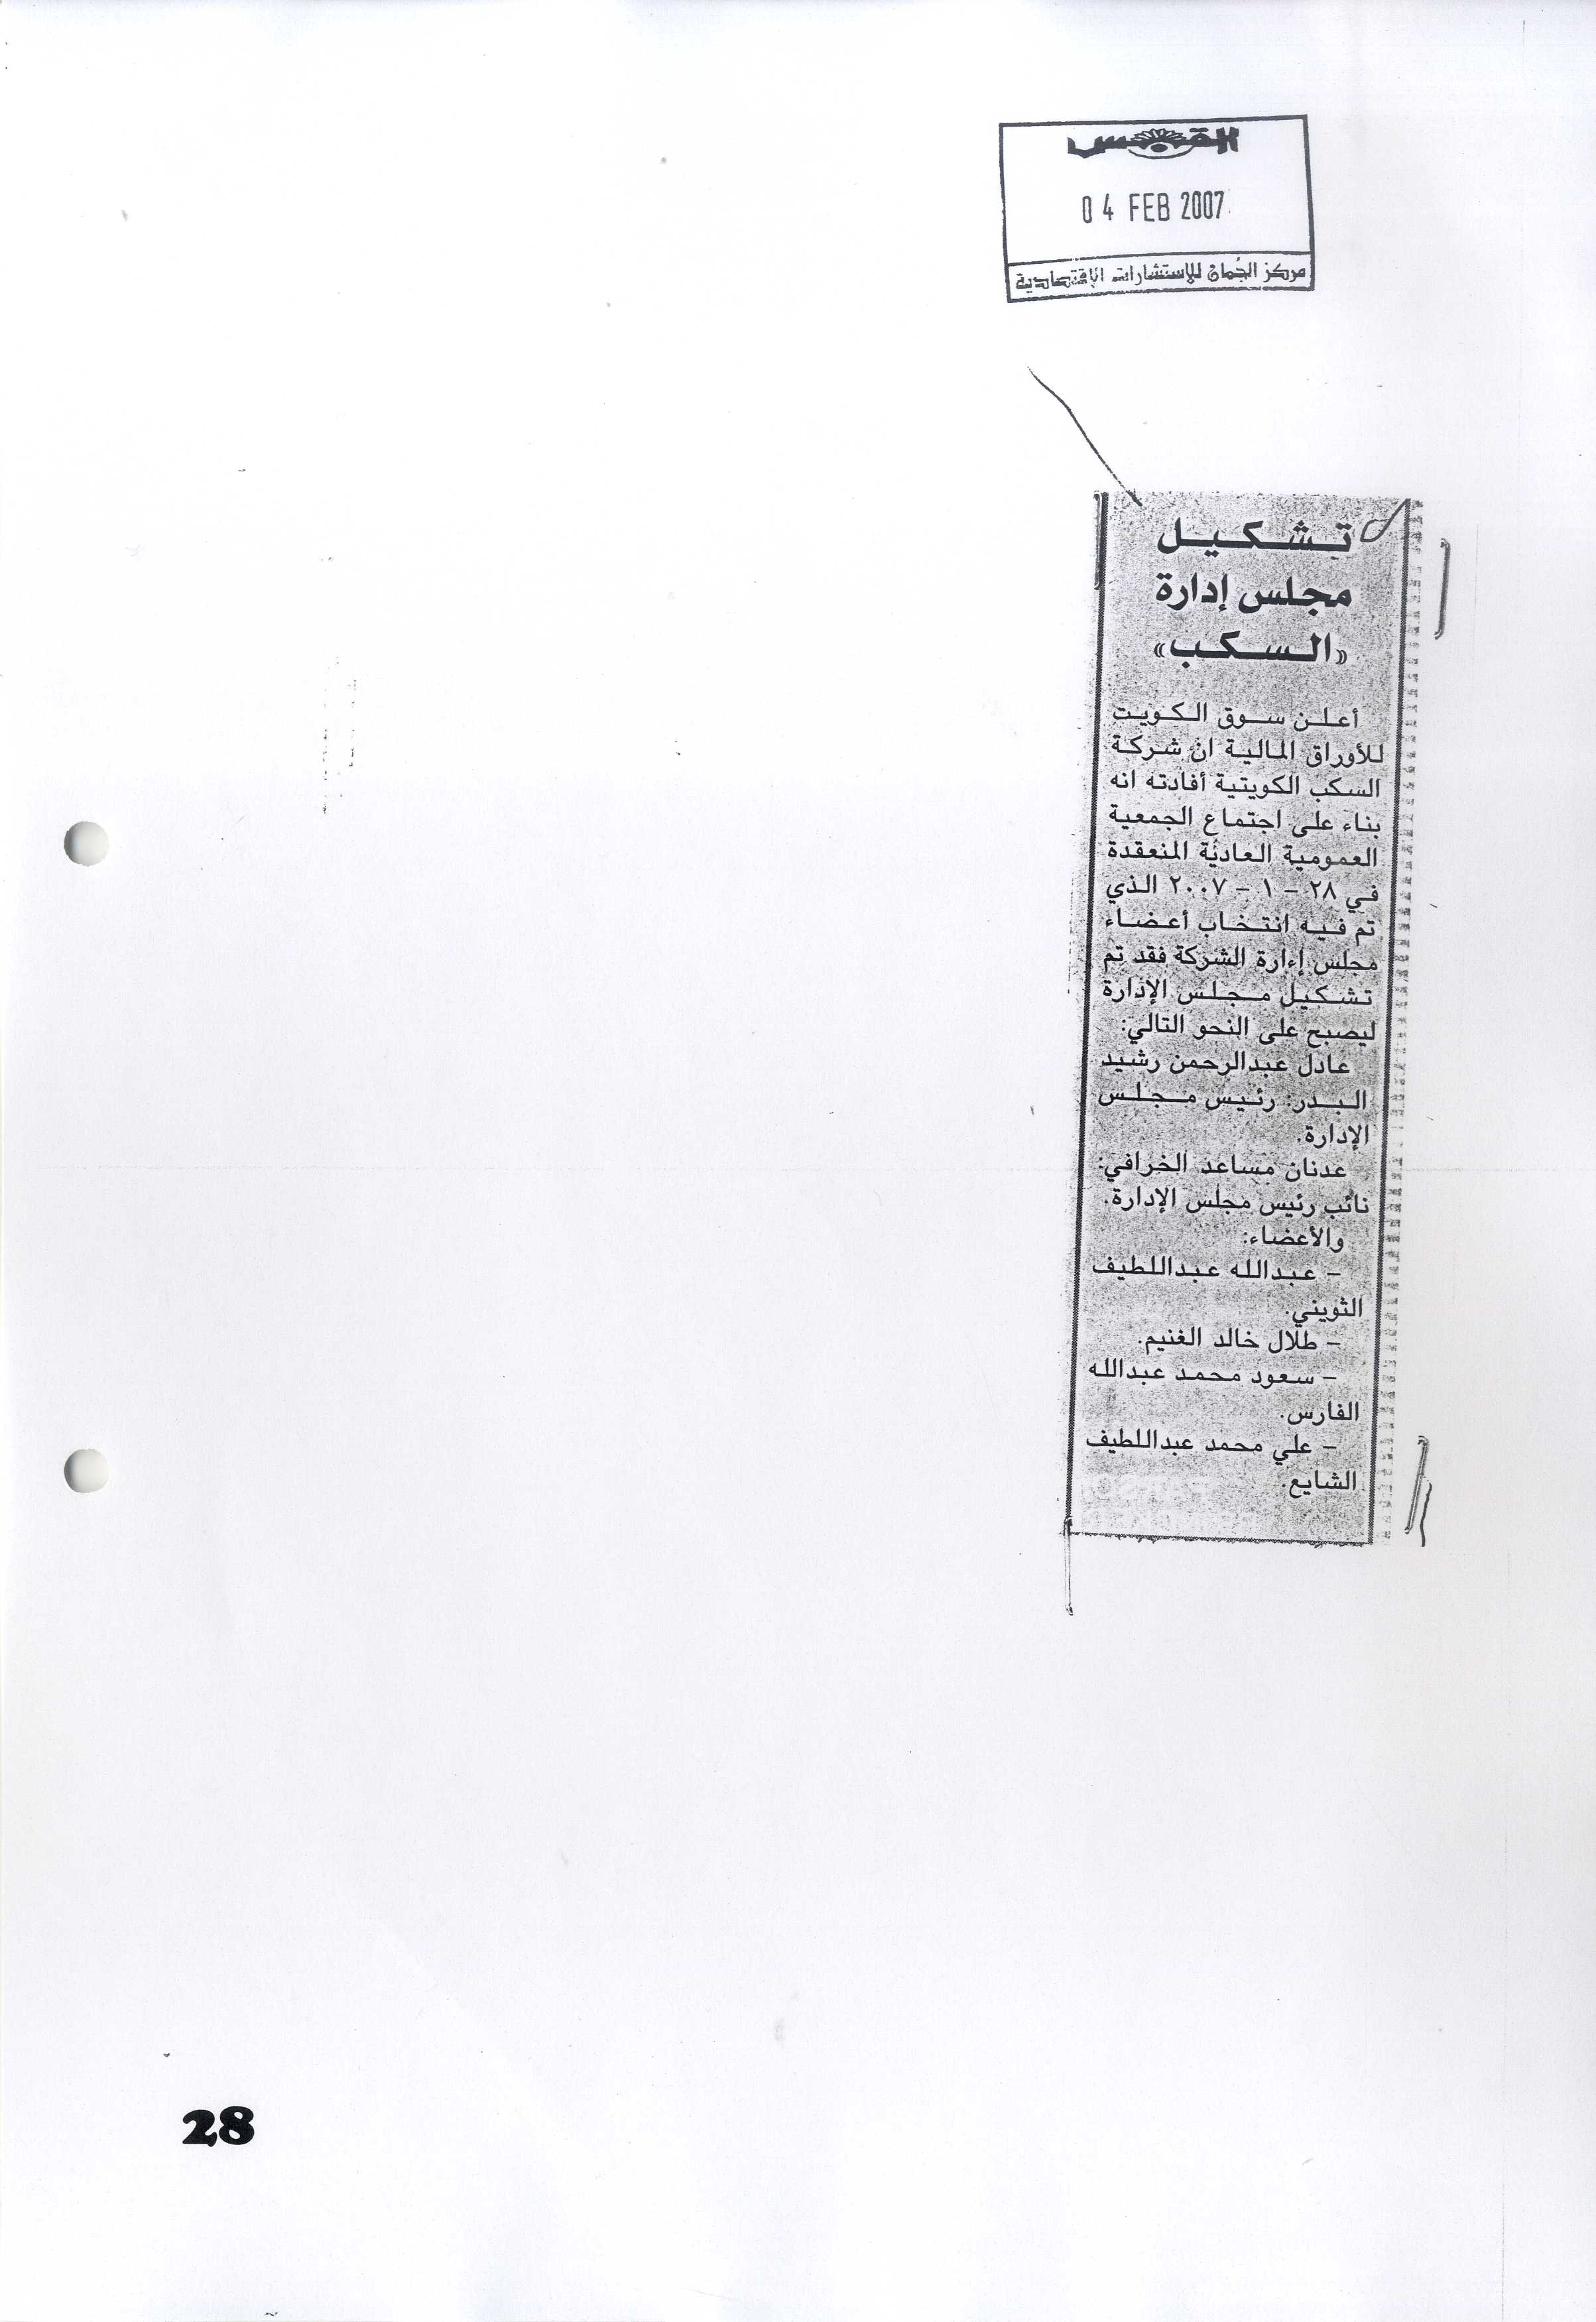 القبس
04 FEB 2007
مركز الجُمان للإستشارات الإقتصادية
تشكيل
مجلس إدارة
«السكب»
أعلن سوق الكويت
للأوراق المالية ان شركة
السكب الكويتية أفادته انه
بناء على اجتماع الجمعية
العمومية العادية المنعقدة
في ٢٨ - ١ - ٢٠٠٧ الذي
تم فيه انتخاب أعضاء
مجلس إدارة الشركة فقد تم
تشكيل مجلس الإدارة
ليصبح على النحو التالي:
عادل عبدالرحمن رشيد
البدر: رئيس مجلس
الإدارة.
عدنان مساعد الخرافي:
نائب رئيس مجلس الإدارة.
والأعضاء:
- عبدالله عبداللطيف
الثويني.
- طلال خالد الغنيم.
- سعود محمد عبدالله
الفارس.
- علي محمد عبداللطيف
الشايع.
28